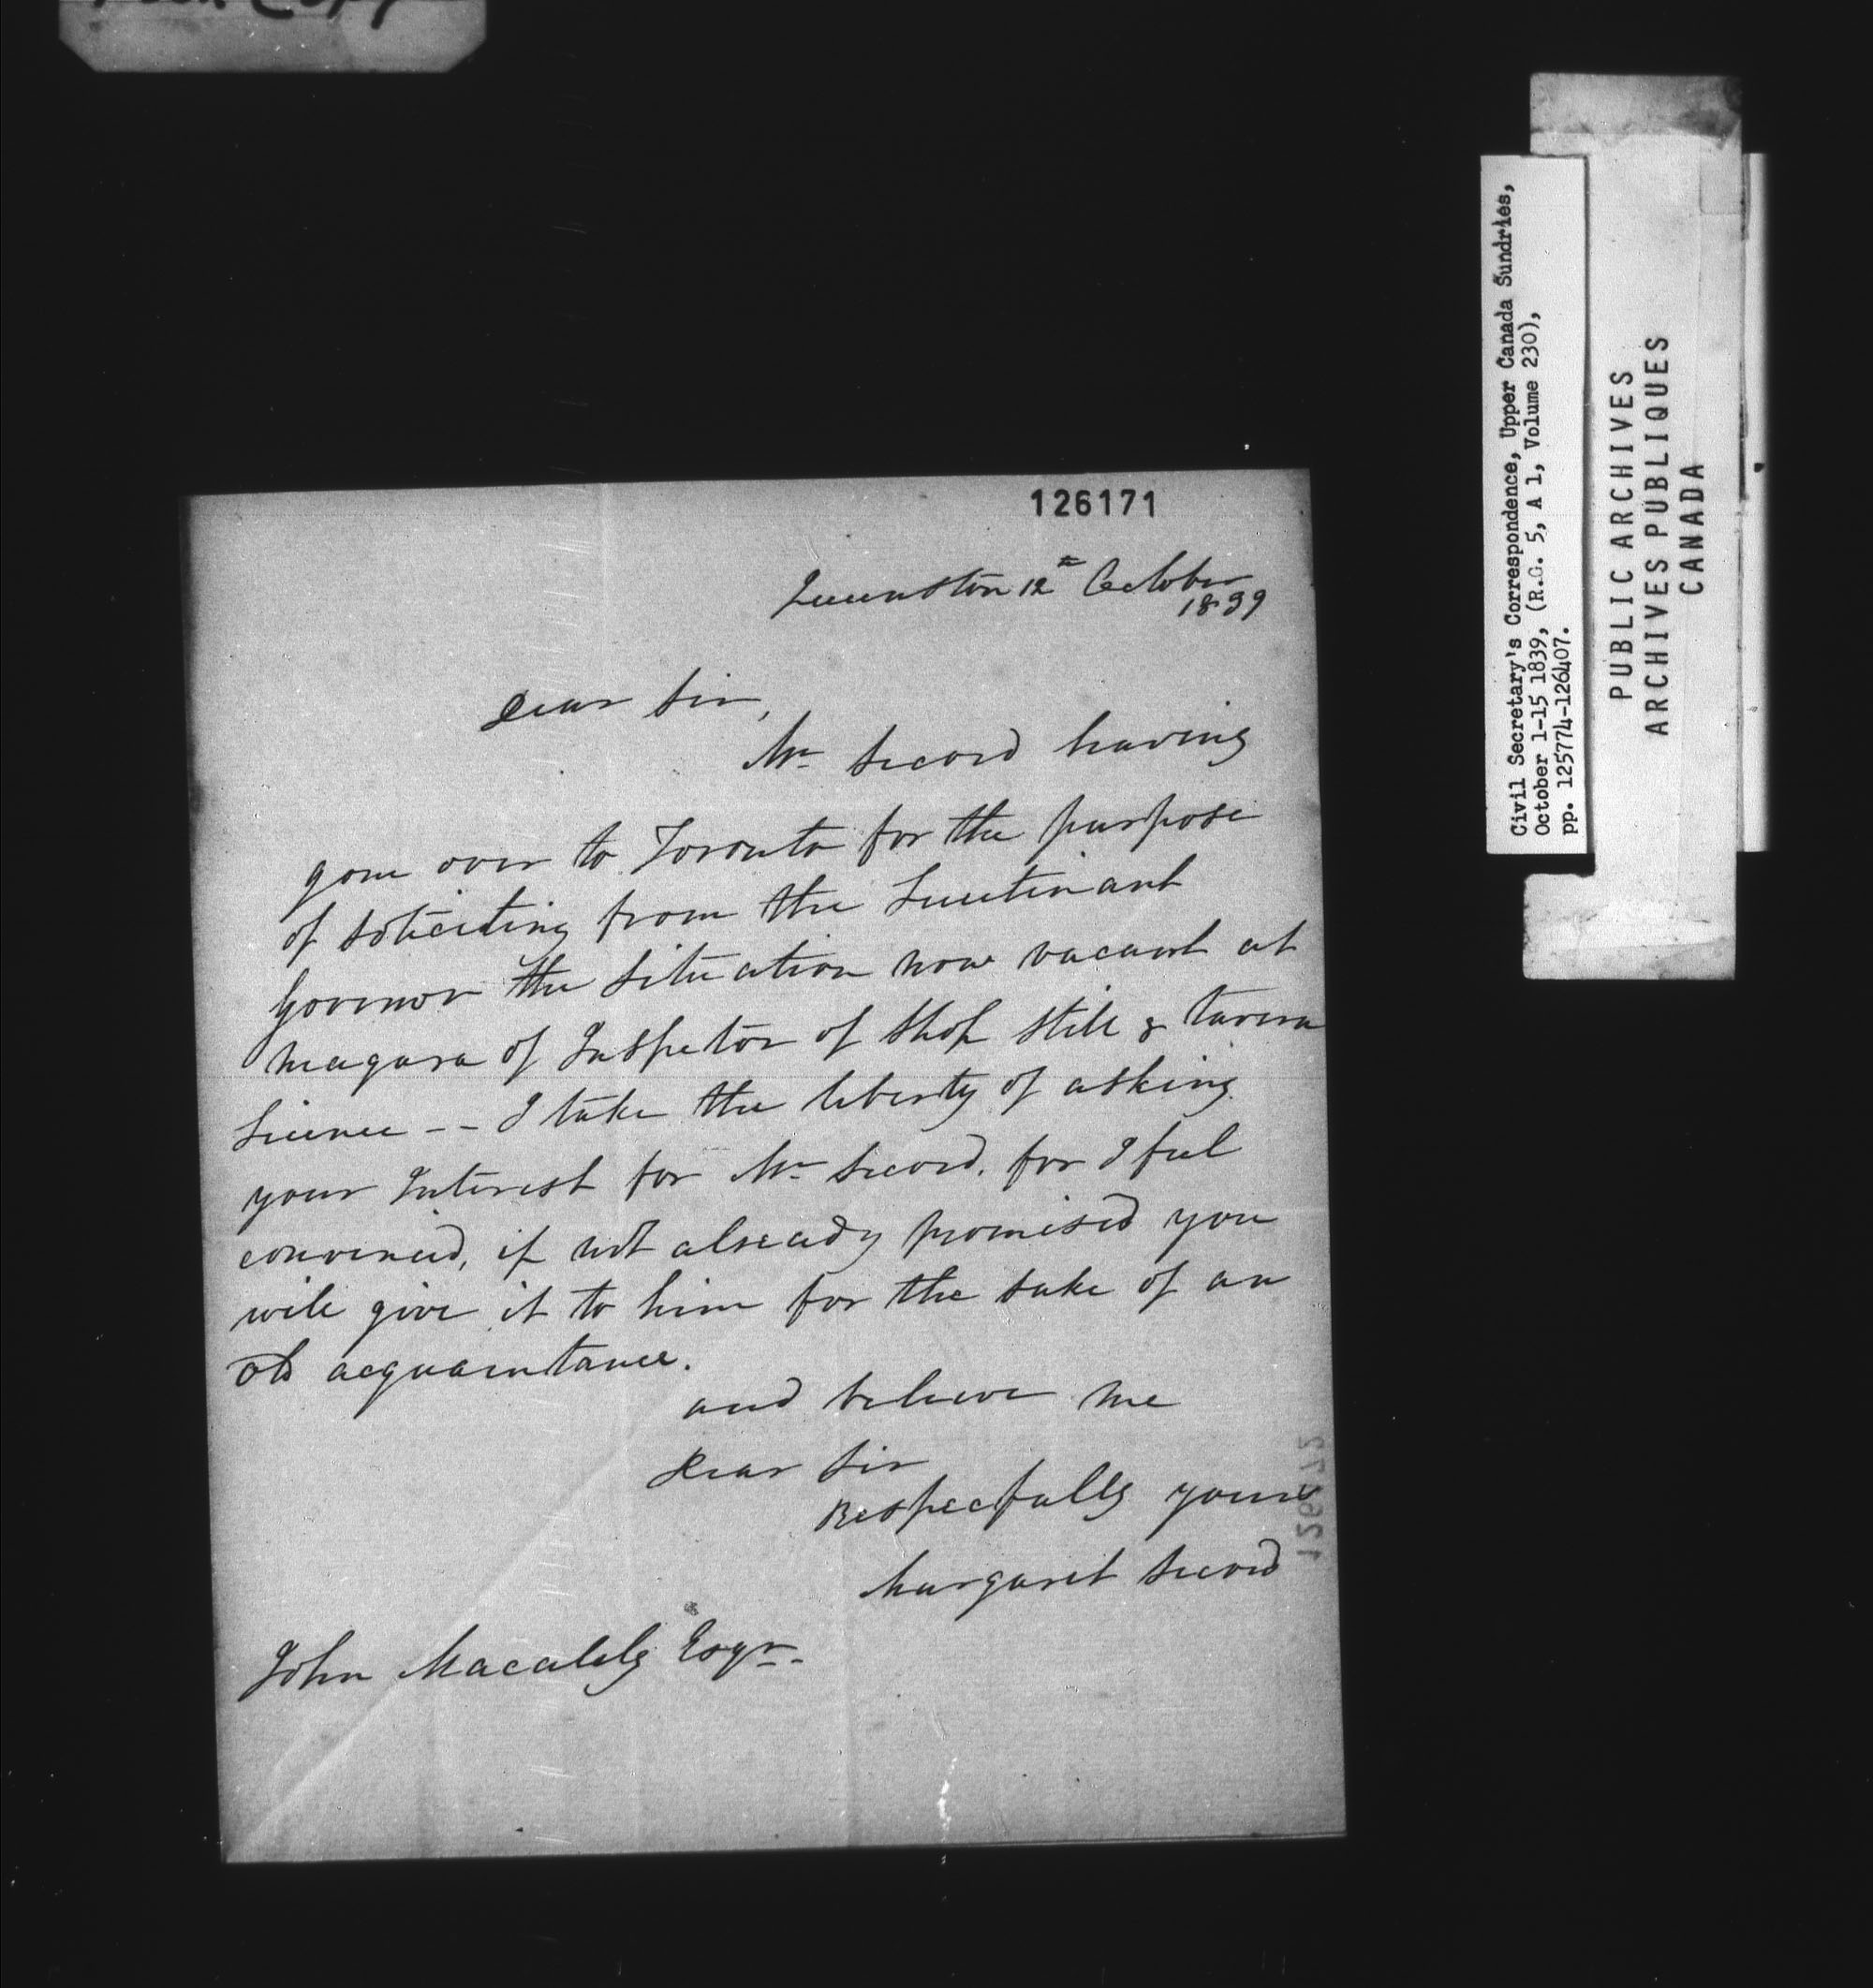 Copy
126171
Queenston 12th October
1839
Dear Sir,
Mr Secord having
gone over to Toronto for the purpose
of soliciting from the Lieutenant
Governor the situation now vacant at
Niagara of Inspector of Shop Still & tavern
Licence -- I take the liberty of asking
your Interest for Mr Secord. for I feel
convinced, if not already promised you
will give it to him for the sake of an
old acquaintance.
and believe me
Dear Sir
Respecfully yours
Margaret Secord
John Macauly Esqr.
Civil Secretary's Correspondence, Upper Canada Sundries,
October 1-15 1839, (R.G. 5, A 1, Volume 230),
pp. 125774-126407.
PUBLIC ARCHIVES
ARCHIVES PUBLIQUES
CANADA